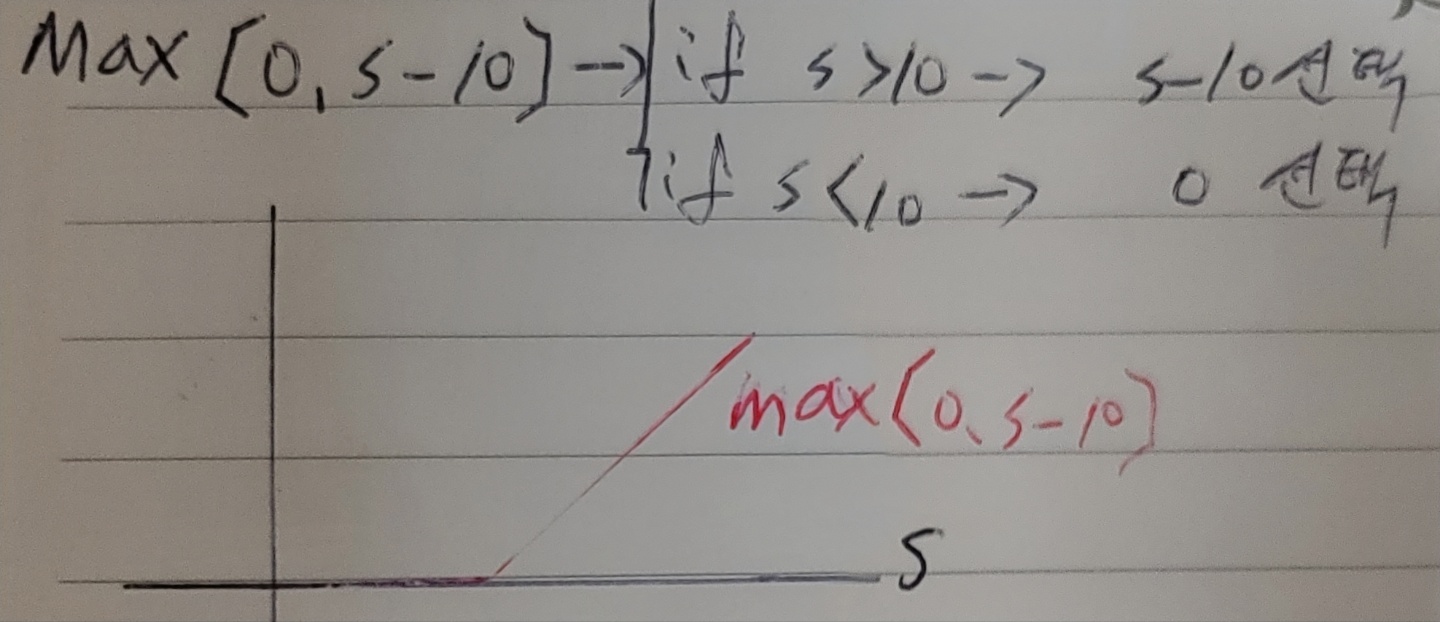 Max [0, S-10] → if S>10 → S-10 선택
if S<10 → 0 선택
max(0, S-10)
S